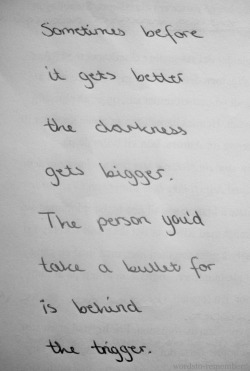 Sometimes before
it gets better
the darkness
gets bigger.
The person you'd
take a bullet for
is behind
the trigger.